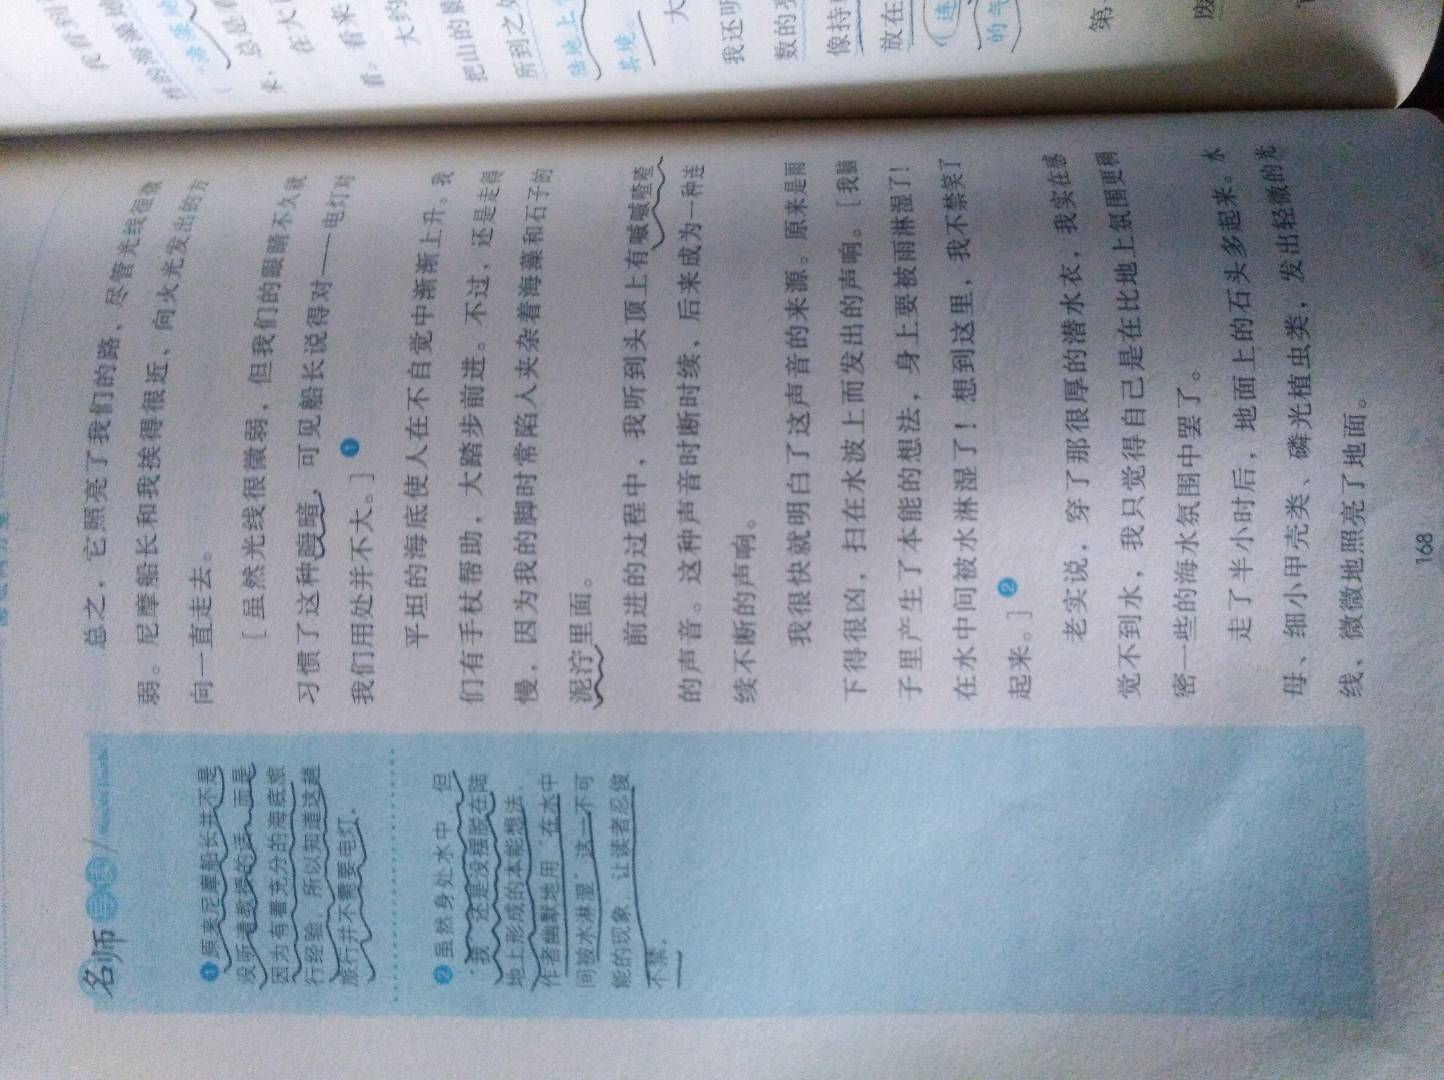 总之，它照亮了我们的路，尽管光线很微
弱。尼摩船长和我挨得很近，向火光发出的方
向一直走去。
[虽然光线很微弱，但我们的眼睛不久就
习惯了这种晦暗，可见船长说得对——电灯对
我们用处并不大。]❶
平坦的海底使人在不自觉中渐渐上升。我
们有手杖帮助，大踏步前进。不过，还是走得
慢，因为我的脚时常陷入夹杂着海藻和石子的
泥泞里面。
前进的过程中，我听到头顶上有嘁嘁喳喳
的声音。这种声音时断时续，后来成为一种连
续不断的声响。
我很快就明白了这声音的来源。原来是雨
下得很凶，扫在水波上而发出的声响。[我脑
子里产生了本能的想法，身上要被雨淋湿了！
在水中间被水淋湿了！想到这里，我不禁笑了
起来。]❷
老实说，穿了那很厚的潜水衣，我实在感
觉不到水，我只觉得自己是在比地上氛围更稠
密一些的海水氛围中罢了。
走了半小时后，地面上的石头多起来。水
母、细小甲壳类、磷光植虫类，发出轻微的光
线，微微地照亮了地面。
168
名师
❶原来尼摩船长并不是
没听清教授的话，而是
因为有着充分的海底旅
行经验，所以知道这趟
旅行并不需要电灯。
❷虽然身处水中，但
“我”还是没摆脱在陆
地上形成的本能想法。
作者幽默地用“在水中
间被水淋湿”这一不可
能的现象，让读者忍俊
不禁。
总是
在大
看来
大约
把山的
所到之处
陆地上
其境。
大
我还
数的
像持
放在
(连
的气
第
废